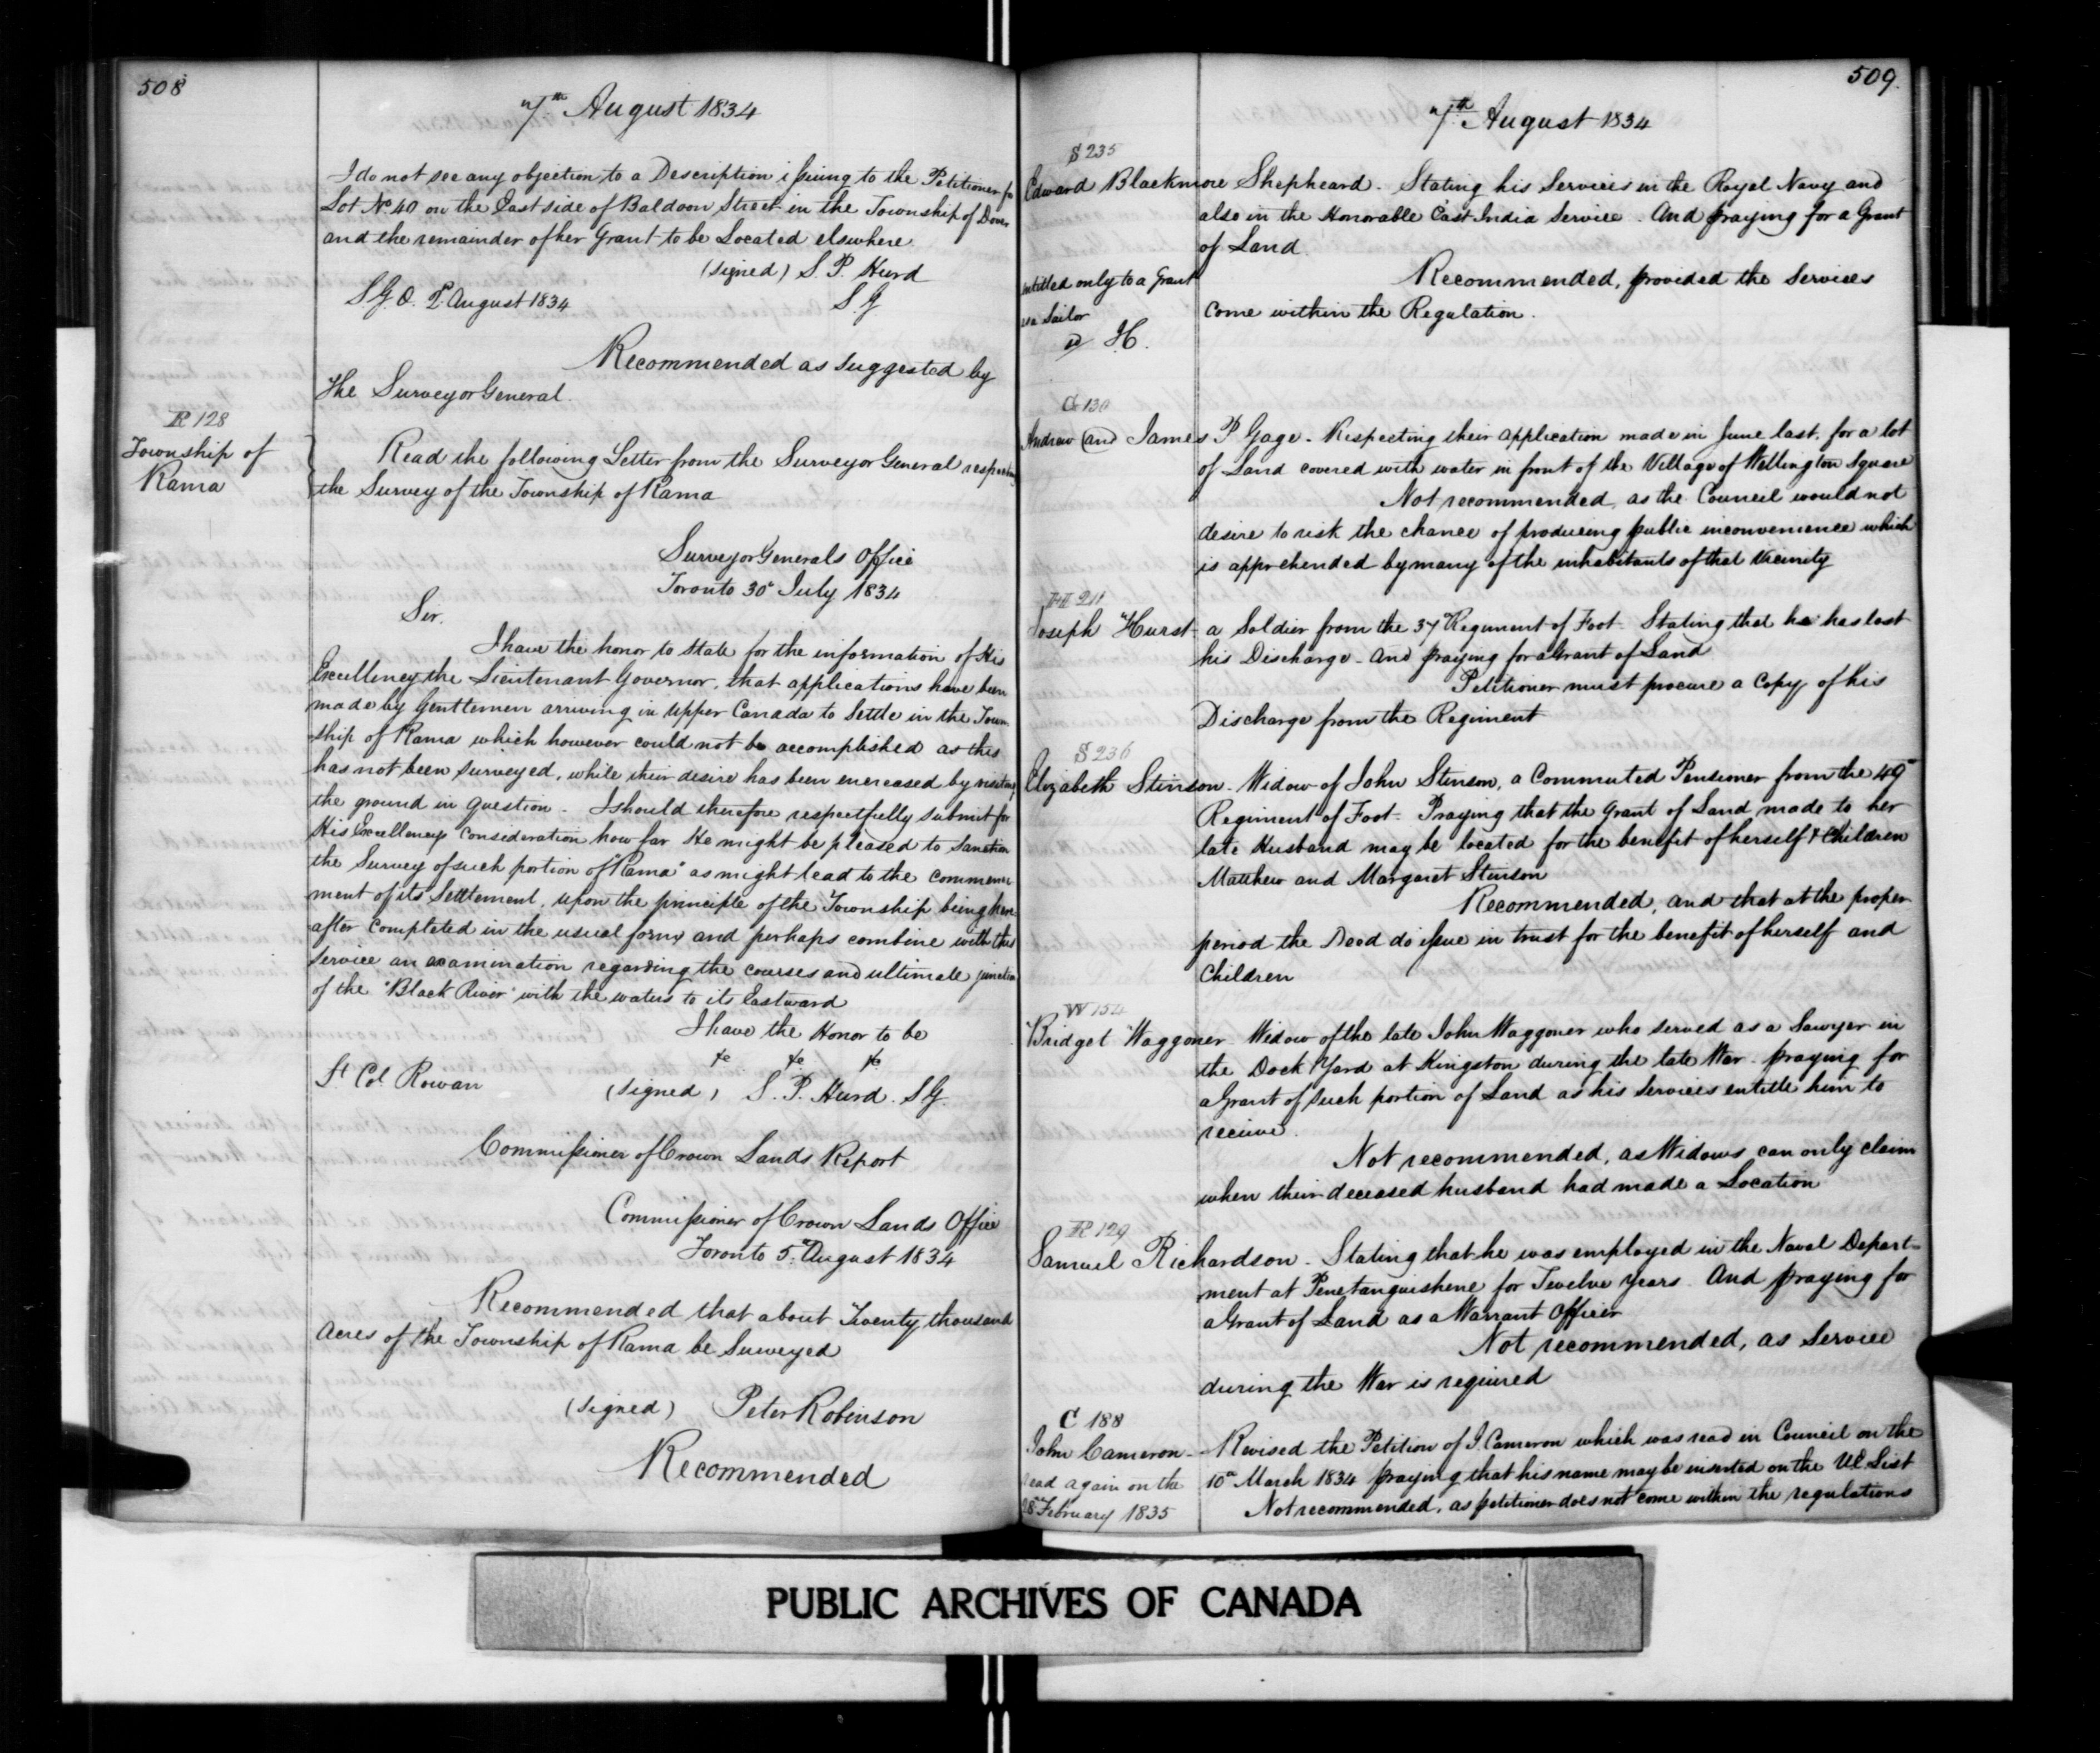 508
7th August 1834
I do not see any objection to a Description issuing to the Petitioner for
Lot No. 40 on the East side of Baldoon Street in the Township of Dover
and the remainder of her Grant to be Located elsewhere
(signed) S. P. Hurd
S.G.O. 2d August 1834 S G
Recommended as suggested by
the Surveyor General.
R 128
Township of
Rama
Read the following Letter from the Surveyor General respecting
the Survey of the Township of Rama
Surveyor Generals Office
Toronto 30th July 1834
Sir.
I have the honor to state for the information of His
Excellency the Lieutenant Governor, that applications have been
made by Gentlemen arriving in Upper Canada to Settle in the Town-
ship of Rama which however could not be accomplished as this
has not been surveyed, while their desire has been encreased by visiting
the ground in question - I should therefore respectfully submit for
His Excellencys consideration how far He might be pleased to sanction
the Survey of such portion of "Rama" as might lead to the commence
ment of its Settlement, upon the principle of the Township being here
after completed in the usual form and perhaps combine with this
service an examination regarding the courses and ultimate junction
of the "Black River" with the waters to its Eastward
I have the Honor to be
&c &c &c
Lt Col Rowan (signed) S. P. Hurd. S G.
Commissioner of Crown Lands Report
Commissioner of Crown Lands Office
Toronto 5th August 1834
Recommended that about Twenty thousand
Acres of the Township of Rama be Surveyed
(signed) Peter Robinson
Recommended
509.
7th August 1834
S 235
Edward Blackmore Shepheard. Stating his Services in the Royal Navy and
also in the Honorable East India Service. And praying for a Grant
of Land.
Recommended, provided the Services
come within the Regulation.
entitled only to a Grant
as a Sailor
H.
G 130
Andrew and James P Gage - Respecting their application made in June last, for a lot
of Land covered with water in front of the Village of Wellington Square
Not recommended, as the Council would not
desire to risk the chance of producing public inconvenience which
is apprehended by many of the inhabitants of that Vicinity
H 211
Joseph Hurst - a Soldier from the 37 Regiment of Foot. Stating that he has lost
his Discharge - And praying for a Grant of Land
Petitioner must procure a Copy of his
Discharge from the Regiment
S 236
Elizabeth Stinson - Widow of John Stinson, a Commuted Pensioner from the 49th
Regiment of Foot - Praying that the Grant of Land made to her
late Husband may be located for the benefit of herself & Children
Matthew and Margaret Stinson
Recommended, and that at the proper
period the Deed do issue in trust for the benefit of herself and
Children
W 154
Bridget Waggoner Widow of the late John Waggoner who served as a Sawyer in
the Dock Yard at Kingston during the late War - praying for
a Grant of such portion of Land as his Services entitle him to
receive.
Not recommended, as Widows can only claim
when their deceased husband had made a Location
R 129
Samuel Richardson - Stating that he was employed in the Naval Depart-
ment at Penetanguishene for Twelve years. And praying for
a Grant of Land as a Warrant Officer
Not recommended, as Service
during the War is required
C 188
John Cameron - Revised the Petition of J. Cameron which was read in Council on the
10th March 1834 praying that his name may be inserted on the UE List
Not recommended, as petitioner does not come within the regulations
read again on the
28 February 1835
PUBLIC ARCHIVES OF CANADA